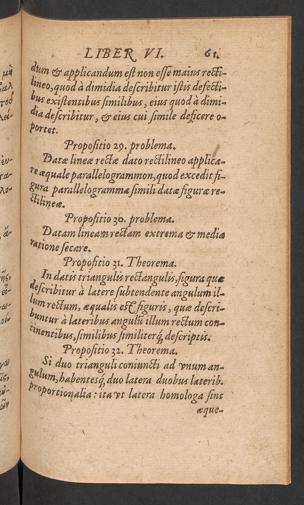 LIBER VI. 61.
dum & applicandum est non esse maius recti-
lineo, quod à dimidia describitur istis defecti-
bus existentibus similibus, eius quod à dimi-
dia describitur, & eius cui simile deficere o-
portet.
Propositio 29. problema.
Datæ lineæ rectæ dato rectilineo applica-
re æquale parallelogrammon, quod excedit fi-
gura parallelogramma simili datæ figuræ re-
ctilineæ.
Propositio 30. problema.
Datam lineam rectam extrema & media
ratione secare.
Propositio 31. Theorema.
In datis triangulis rectangulis, figura quæ
describitur à latere subtendente angulum il-
lum rectum, æqualis est figuris, quæ descri-
buntur à lateribus angulū illum rectum con-
tinentibus, similibus similiterq́, descriptis.
Propositio 32. Theorema.
Si duo trianguli coniuncti ad vnum an-
gulum, habentesq́, duo latera duobus laterib.
proportionalia: ita vt latera homologa sint
æque-